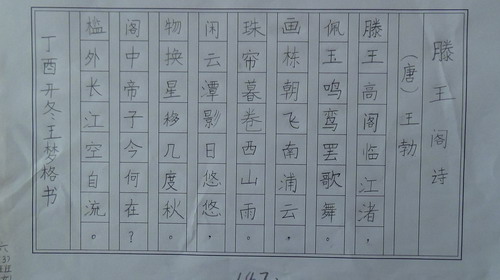 滕王阁诗
（唐）王勃
滕王高阁临江渚，
佩玉鸣鸾罢歌舞。
画栋朝飞南浦云，
珠帘暮卷西山雨。
闲云潭影日悠悠，
物换星移几度秋。
阁中帝子今何在？
槛外长江空自流。
丁酉开冬王梦格书
六